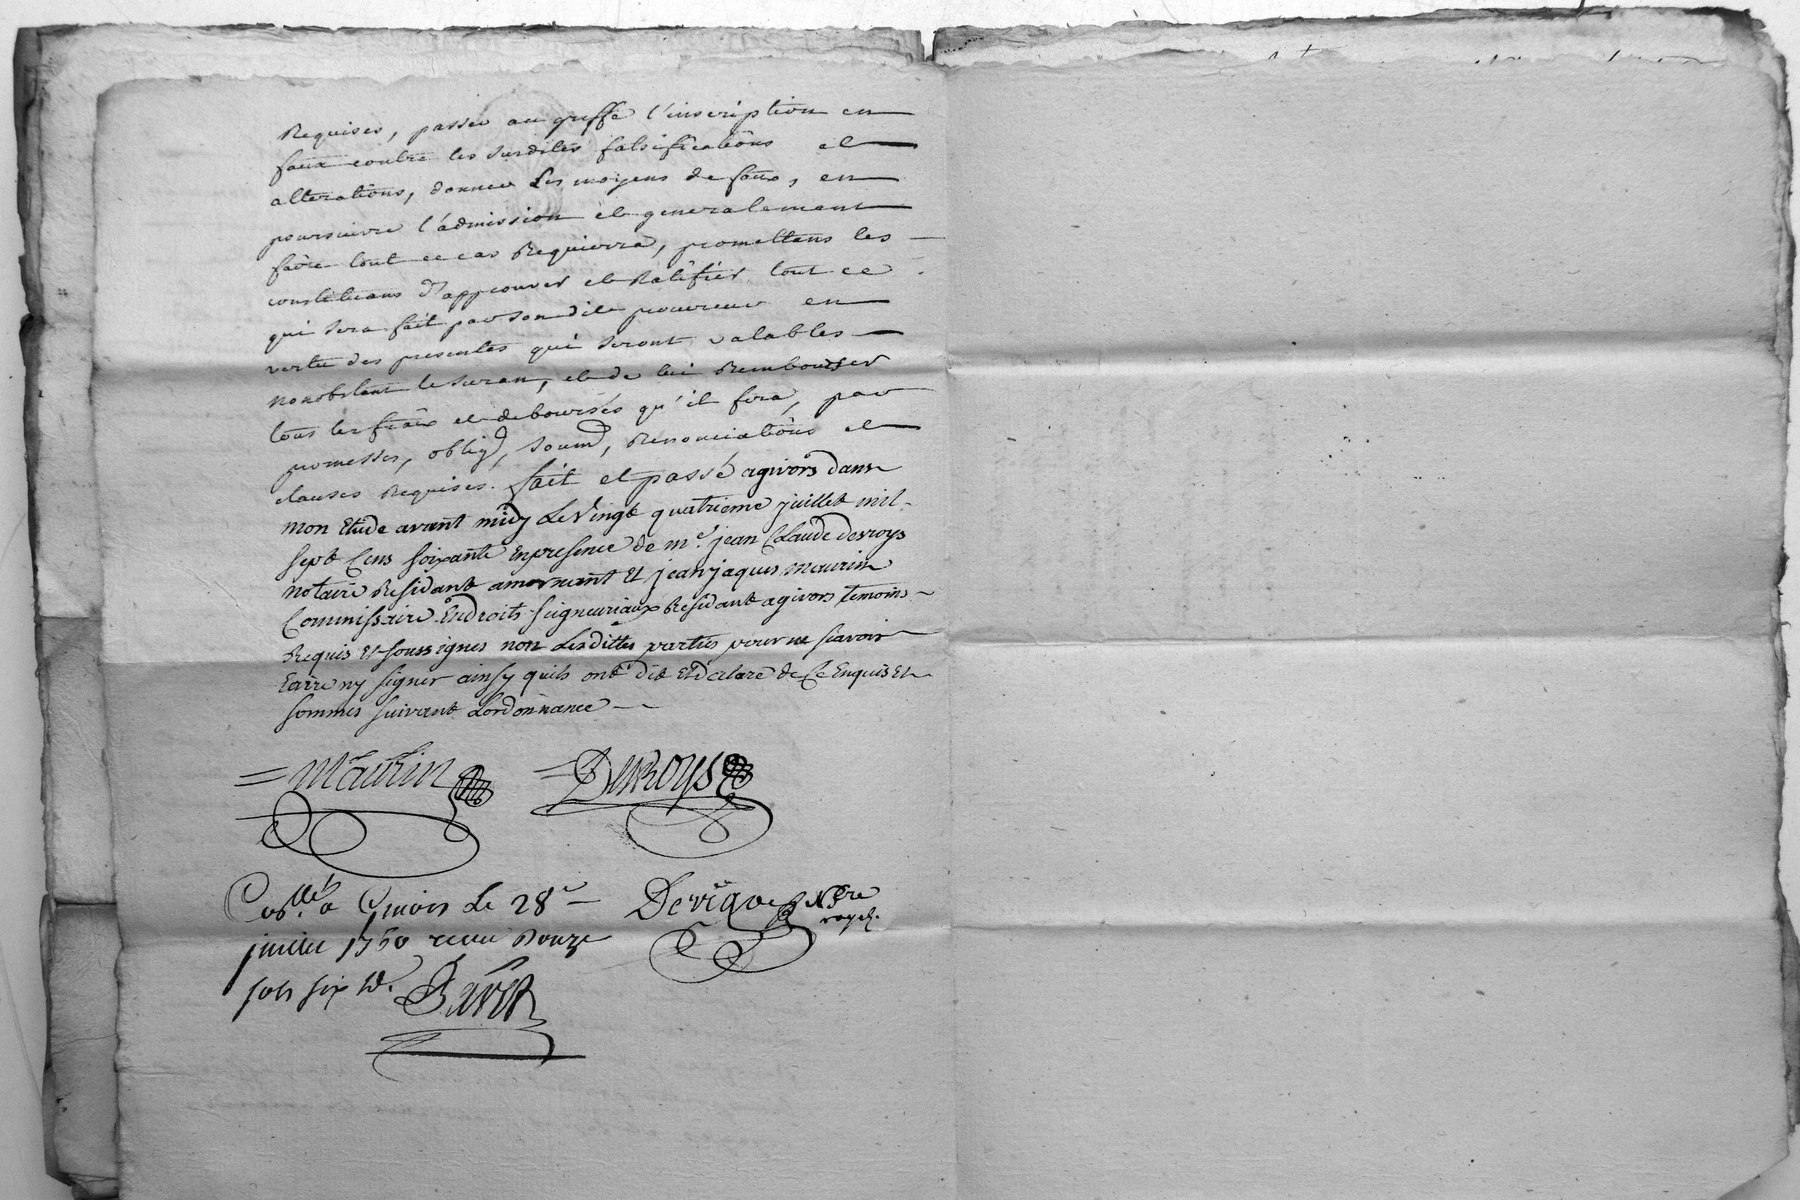 Requises, passer au greffe l'inscription en
faux contre les susdites falsifications et
alterations, donner les moyens de faux, en
poursuivre l'admission et generalement
faire tout ce cas Requierra, promettans les
constituans d'approuver et Ratifier tout ce
qui sera fait par son dit procureur en
vertu des presentes qui seront valables
nonobstant le suran, et de lui Rembourser
tous les frais et deboursés qu'il fera, par
promesses, oblig, soum, Renonciations et
clauses Requises. fait et passé agivors dans
mon Etude avant midy Le Vingt quatrieme juillet mil
sept Cens soixante En presence de me. jean Claude desroys
notaire Residant amornant Et jean jaques maurin
Commissaire En droits seigneuriaux Residant agivors temoins
Requis Et soussignes non Lesdittes parties pour ne scavoir
Ecrire ny signer ainsy quils ont dit Et declaré de Ce Enquis Et
sommes suivant Lordonnance
Maurin Desroys
Conllé. a Givors Le 28e
juillet 1760 receu Douze
sols six d.
Devigne Nre
royal.